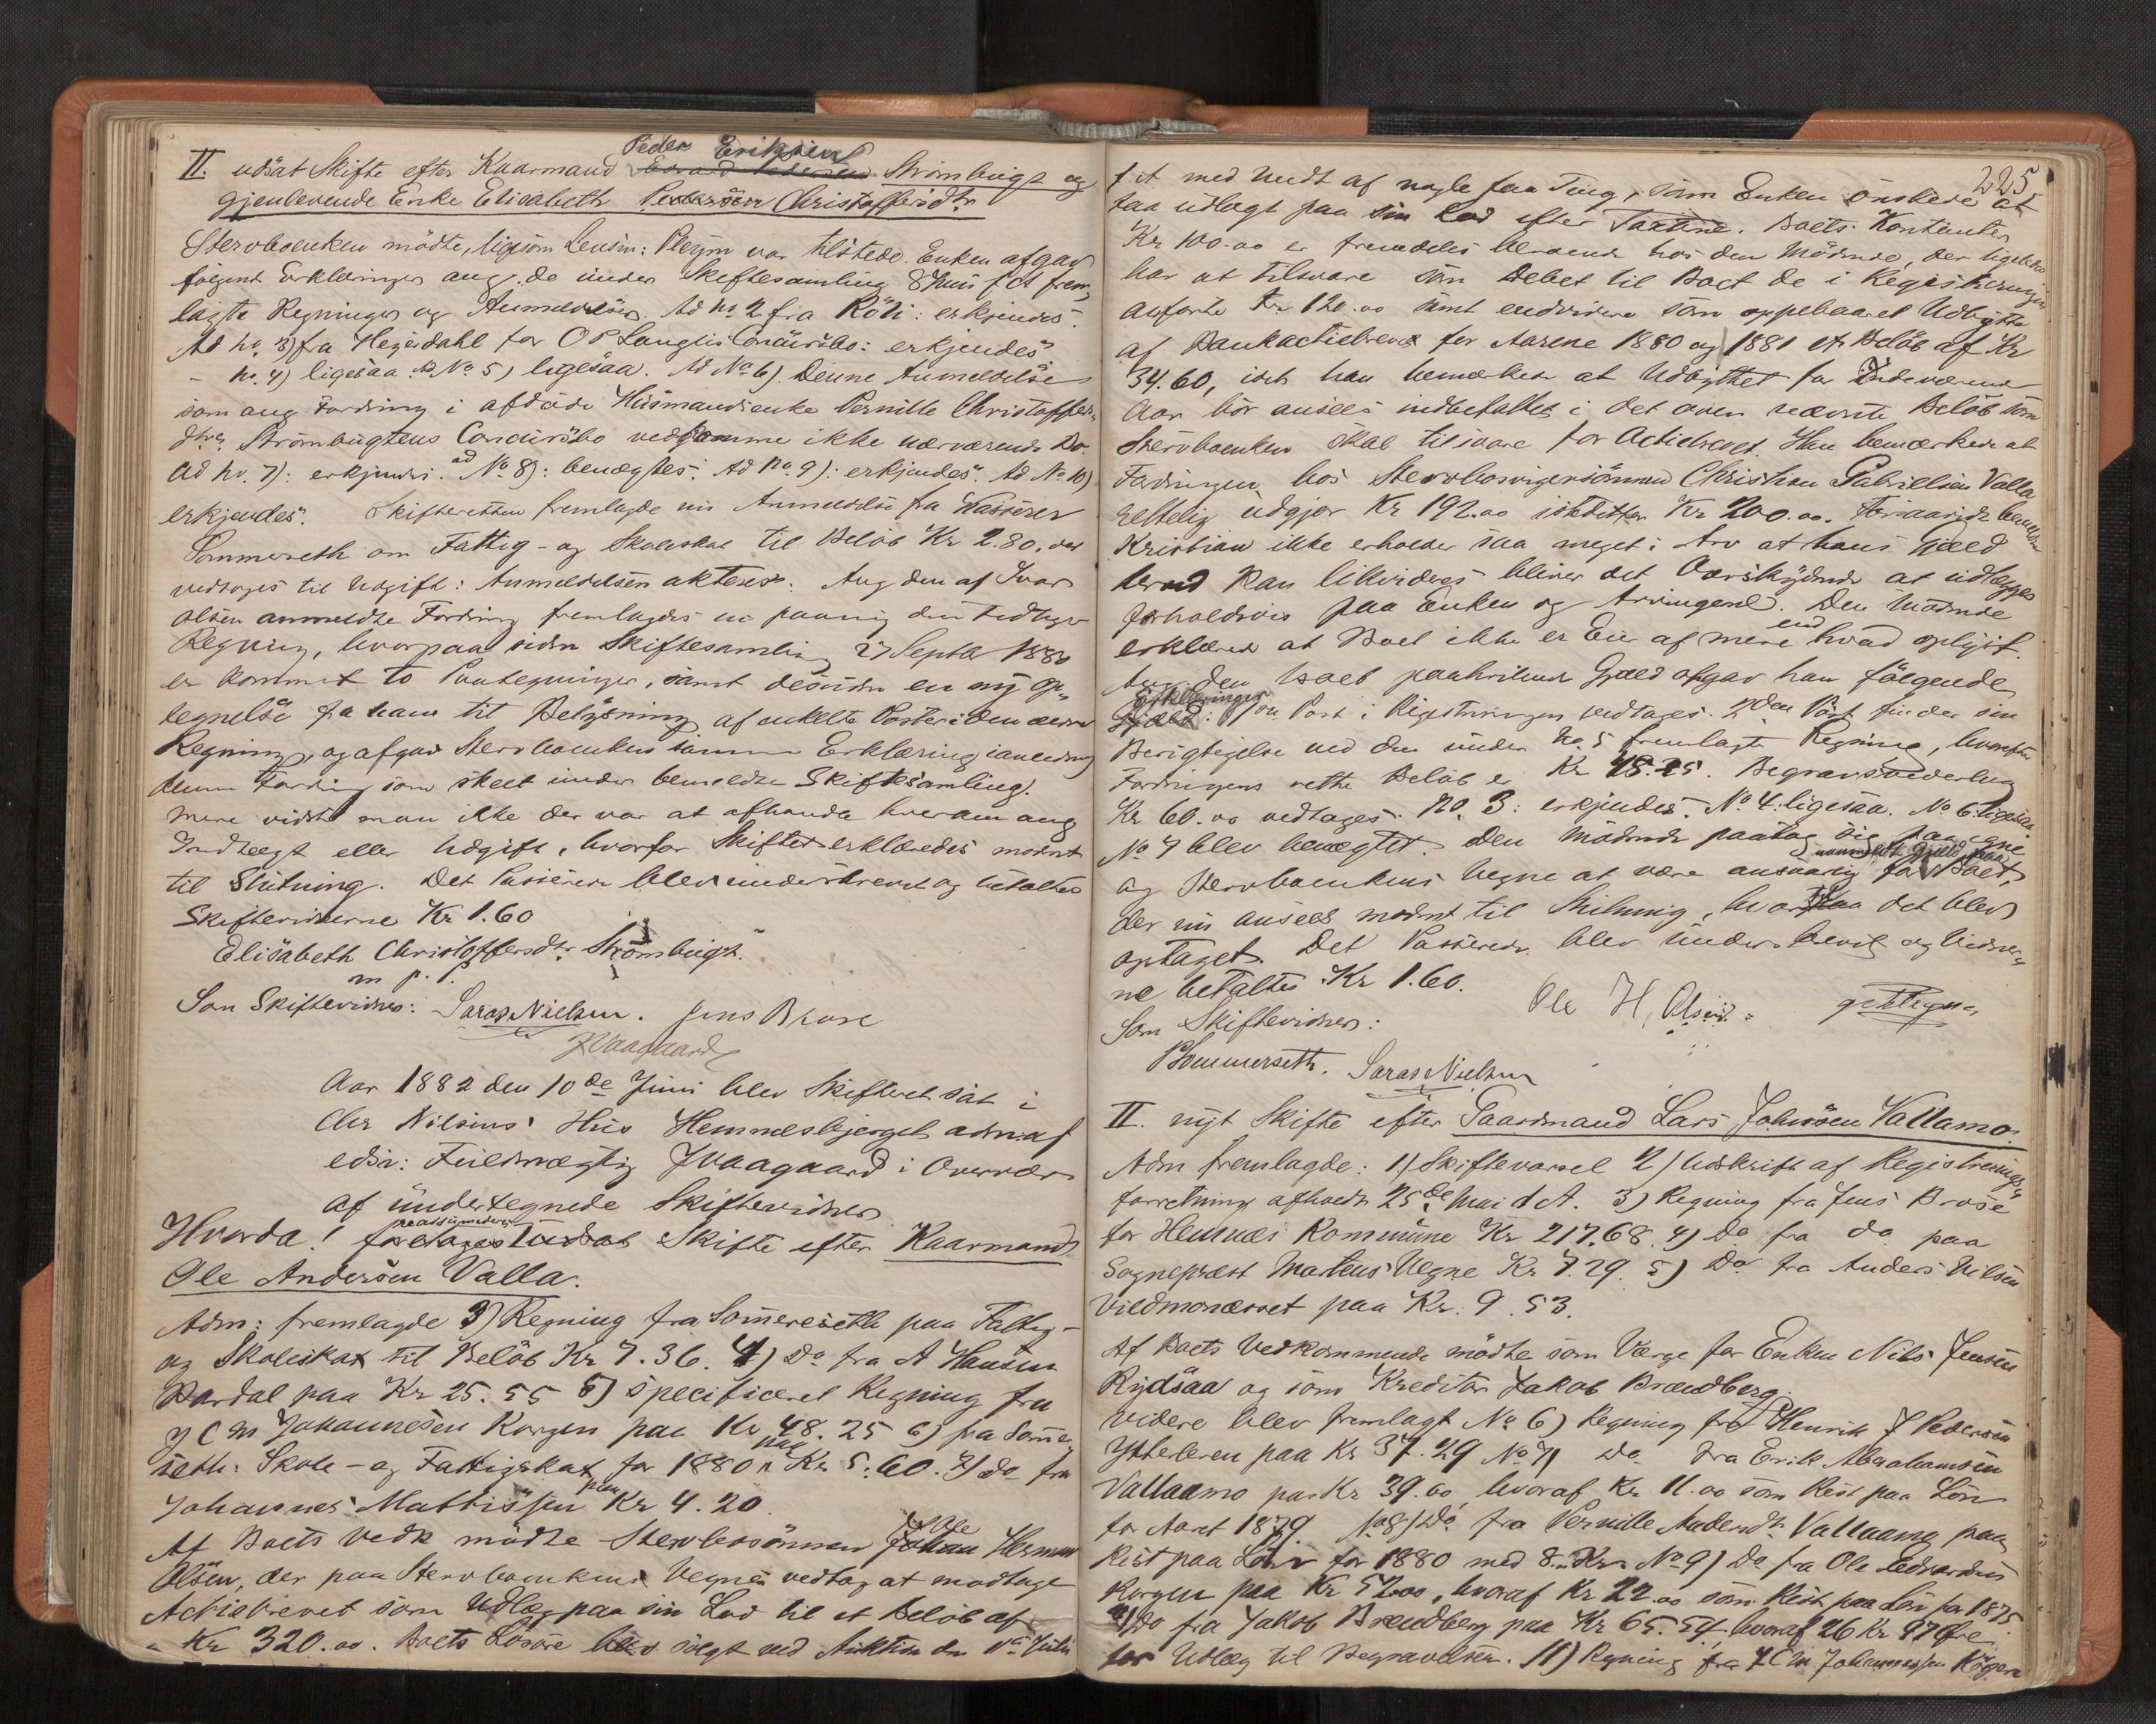 Peder Eriksens
II. udsat Skifte efter Kaarmand Strømbugt og
gjenlevende Enke Elisabeth Pedersen Christoffersdtr
Stervboenken mødte, ligesom Lensm: Pleym var tilstede. Enken afgav
følgende Erklæringer ang. de under Skiftesamling 8 Juni f A frem¬
lagte Regninger og Anmeldelser. Ad No. 2 fra Röli: erkjendes.
Ad No. 3) fra Hegerdahl for O P Langlis Concursbo: erkjendes
- No. 4) ligesaa. Ad No 5) ligesaa. Ad No 6). Denne Anmeldelse
som ang Fordring i afdøde Husmandsenke Pernille Christoffers¬
dtrs Strømbugtens Concursbo vedkomme ikke nærværende Bo.
Ad No. 7): erkjendes. ad No 8): benægtes. Ad No. 9): erkjendes. Ad No 10)
erkjendes. Skifteretten fremlagde en Anmeldelse fra Kasserer
Sommerseth om Fattig- og Skoleskat til Beløb Kr 2.80, der
vedtoges til Udgift: Anmeldelsen akteres. Ang den af Ivar
Olsen anmeldte Fordring fremlagdes nu paany den tidligere
Regning, hvorpaa siden Skiftesamling 27 Septbr 1880
er kommet to Paategninger, samt desuden en ny Op¬
tegnelse fra ham til Belysning af enkelte Poster i den nævnte
Regning, og afgav Stervboenken samme Erklæring i anledning
denne Fordring som skeet under bemeldte Skiftesamling.
Mere vidste man ikke der var at afhandle hverken ang
Indtægt eller Udgift, hvorfor Skiftet erklæredes modent
til Slutning. Det Passerede blev underskrevet og betaltes
Skiftevidnerne Kr 1.60
Elisabeth Christoffersdtr. Strømbugt.
m p. p.
Som Skiftevidner: Saras Nielsen. Jens Brose
J Vaagaard
Aar 1882 den 10de Juni blev Skifteret sat i
Chr Nilsens' Hus Hemnesbjerget adm. af
edsv: Fuldmægtig J Vaagaard i Overvær
af undertegnede Skiftevidner
Hvorda! reassumeres
foretages udsat Skifte efter Kaarmand
Ole Andersen Valla.
Adm: fremlagde 3) Regning fra Sommerseth paa Fattig-
og Skoleskat til Beløb Kr 7.36. 4) Do fra A Hansen
Bardal paa Kr 25.55 5) specificeret Regning fra
J C M Johannesen Korgen paa Kr 48.25 6) fra Sommer¬
seth: Skole- og Fattigskat for 1880 paa Kr 5.60. 7) Do fra
Johannes Mattissen paa Kr 4.20.
Af Boets Vedk mødte Stervbosønnen Ole Herman
Olsen, der paa Stervboenkens Vegne vedtog at modtage
Actiebrevet som Udlæg paa sin Lod til et Beløb af
Kr 320.00. Boets Løsøre blev solgt ved Auktion den 11te Juli
225
f A med Undt af nogle faa Ting, som Enken ønskede at
faa udlagt paa sin Lod efter Taxtene. Boets Kontanter
Kr 100.00 er fremdeles beroende hos den Mødende, der ligeledes
har at tilsvare som Debet til Boet de i Registreringen
anførte Kr 120.00 samt endvidere som oppebaaret Udbytte
af Bankactiebrevet for Aarene 1880 og 1881 et Beløb af Kr
34.60, idet han bemærkede at Udbyttet for Indeværende
Aar bør ansees indbefattet i det oven nævnte Beløb som
Stervboenken skal tilsvare for Actiebrevet. Han bemærkede at
Fordringen hos Stervbosvigersønnen Christian Gabrielsen Valla
rettelig udgjør Kr 192.00 istedetfor Kr 200.00. Forsaavidt bemeldte
Kristian ikke erholder saa meget i Arv at hans Gjæld
derved kan likvideres bliver det Overskydende at udlægges
forholdsvis paa Enken og Arvingerne. Den Mødende
erklærede at Boet ikke er Eier af mere end hvad oplyst.
Ang den Boet paahvilende Gjæld afgav han følgende
Erklæringer: 1ste Post i Registreringen vedtages. 2den Post finder sin
Berigtigelse ved den under No. 5 fremlagte Regning, hvorefter
Fordringens rette Beløb er Kr 48.25. Begravelsesvederlag
Kr 60.00 vedtages. No. 3: erkjendes. No 4. ligesaa. No 6. ligesaa
No 7 blev benægtet. Den Mødende paatog sig paa egne
og Stervboenkens Vegne at være ansvarlig for Boet,
der nu ansees modent til Slutning, hvorpaa det blev
optaget. Det Passerede blev underskrevet og Vidner¬
ne betaltes Kr 1.60.
Ole H. Olsen.
Som Skiftevidner:
PSommerseth. Saras Nielsen
II. nyt Skifte efter Gaardmand Lars Johnsen Vallamo.
Adm fremlagde: 1) Skiftevarsel 2) Udskrift af Registrerings¬
forretning afholdt 25de Mai d A. 3) Regning fra Jens Brose
for Hemnes Kommune Kr 217.68. 4) Do fra do paa
Sognepræst Martens' Vegne Kr 7.29. 5) Do fra Anders Nilsen
Vildmonesset paa Kr. 9.53.
Af Boets Vedkommende mødte som Værge for Enken Nils Jensen
Rydsaa og som Kreditor Jakob Brendberg.
Videre blev fremlagt No 6) Regning fra Henrik J Pedersen
Ytterleren paa Kr 37.29 No 7) Do fra Erik Abrahamsen
Vallaamo paa Kr 39.00 hvoraf Kr 11.00 som Rest paa Løn
for Aaret 1879. No 8) Do fra Pernille Andersdtr Vallaamo paa
Rest paa Løn for 1880 med 8.. Kr. No 9) Do fra Ole Edvardsen
Korgen paa Kr 52.00, hvoraf Kr 22.00 som Rest paa Løn for 1875.
10) Do fra Jakob Brendberg paa Kr 65.54, hvoraf 26 Kr 97 Øre
for Udlæg til Begravelsen. 11) Regning fra J C M Johannessen Korgen